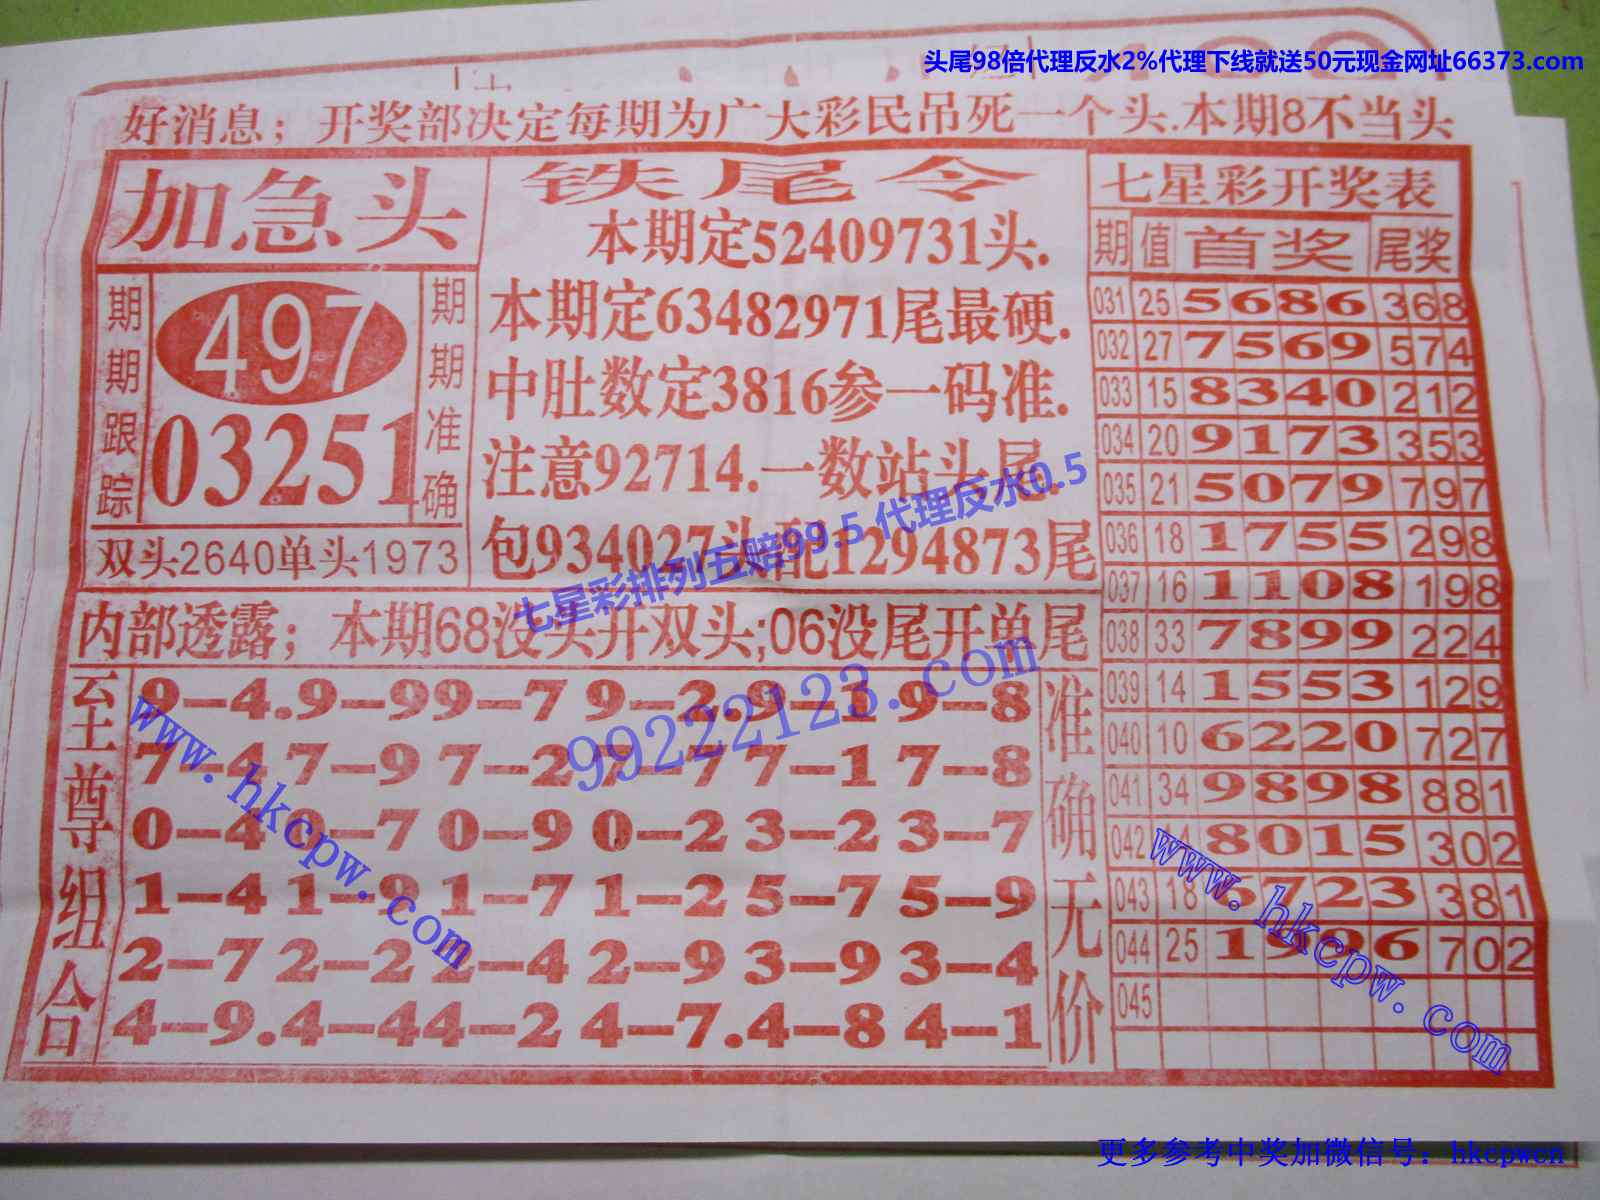 头尾98倍代理反水2%代理下线就送50元现金网址66373.com
好消息；开奖部决定每期为广大彩民吊死一个头.本期8不当头
加急头
期期跟踪
497
03251
期期准确
双头2640单头1973
铁尾令
本期定52409731头.
本期定63482971尾最硬.
中肚数定3816参一码准.
注意92714.一数站头尾.
包934027头配1294873尾
七星彩排列五赔99.5 代理反水0.5
内部透露；本期68没头开双头;06没尾开单尾
99222123.com
至尊组合
9-4.9-99-7 9-2.9-1 9-8
7-4 7-9 7-2 7-7 7-1 7-8
0-4 0-7 0-9 0-2 3-2 3-7
1-4 1-9 1-7 1-2 5-7 5-9
2-7 2-2 2-4 2-9 3-9 3-4
4-9.4-44-2 4-7.4-8 4-1
准确无价
www.hkcpw.com
七星彩开奖表
期 值 首奖 尾奖
031 25 5686 368
032 27 7569 574
033 15 8340 212
034 20 9173 353
035 21 5079 797
036 18 1755 298
037 16 1108 198
038 33 7899 224
039 14 1553 129
040 10 6220 727
041 34 9898 881
042 14 8015 302
043 18 6723 381
044 25 702
045
www.hkcpw.com
更多参考中奖加微信号：hkcpwcn